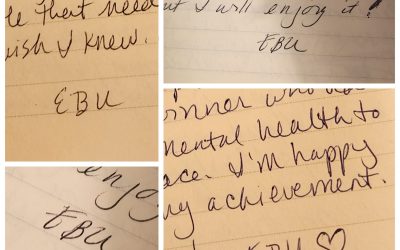 le that need
wish I knew.
EBU
but I will enjoy it!
EBU
enjoy
EBU
inner who
mental health to
ace. I'm happy
my achievement.
EBU ♡